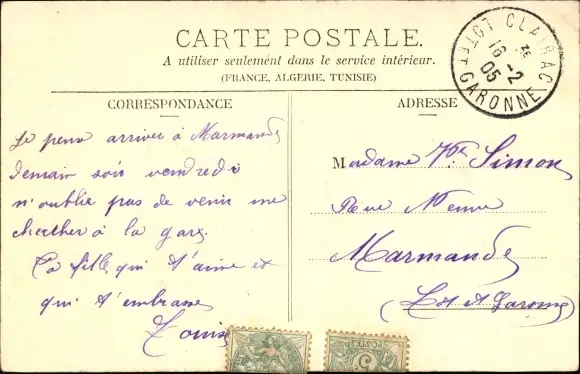 CARTE POSTALE.
A utiliser seulement dans le service intérieur.
(FRANCE, ALGERIE, TUNISIE)
CLAIRAC
LOT-ET-GARONNE
16 -2
05
CORRESPONDANCE
Je pense arriver à Marmande
demain soir vendredi
n'oublie pas de venir me
chercher à la gare.
Ta fille qui t'aime et
qui t'embrasse
Louise
ADRESSE
Madame Vve Simon
Rue Neuve
Marmande
(Lot et Garonne)
POSTES
5